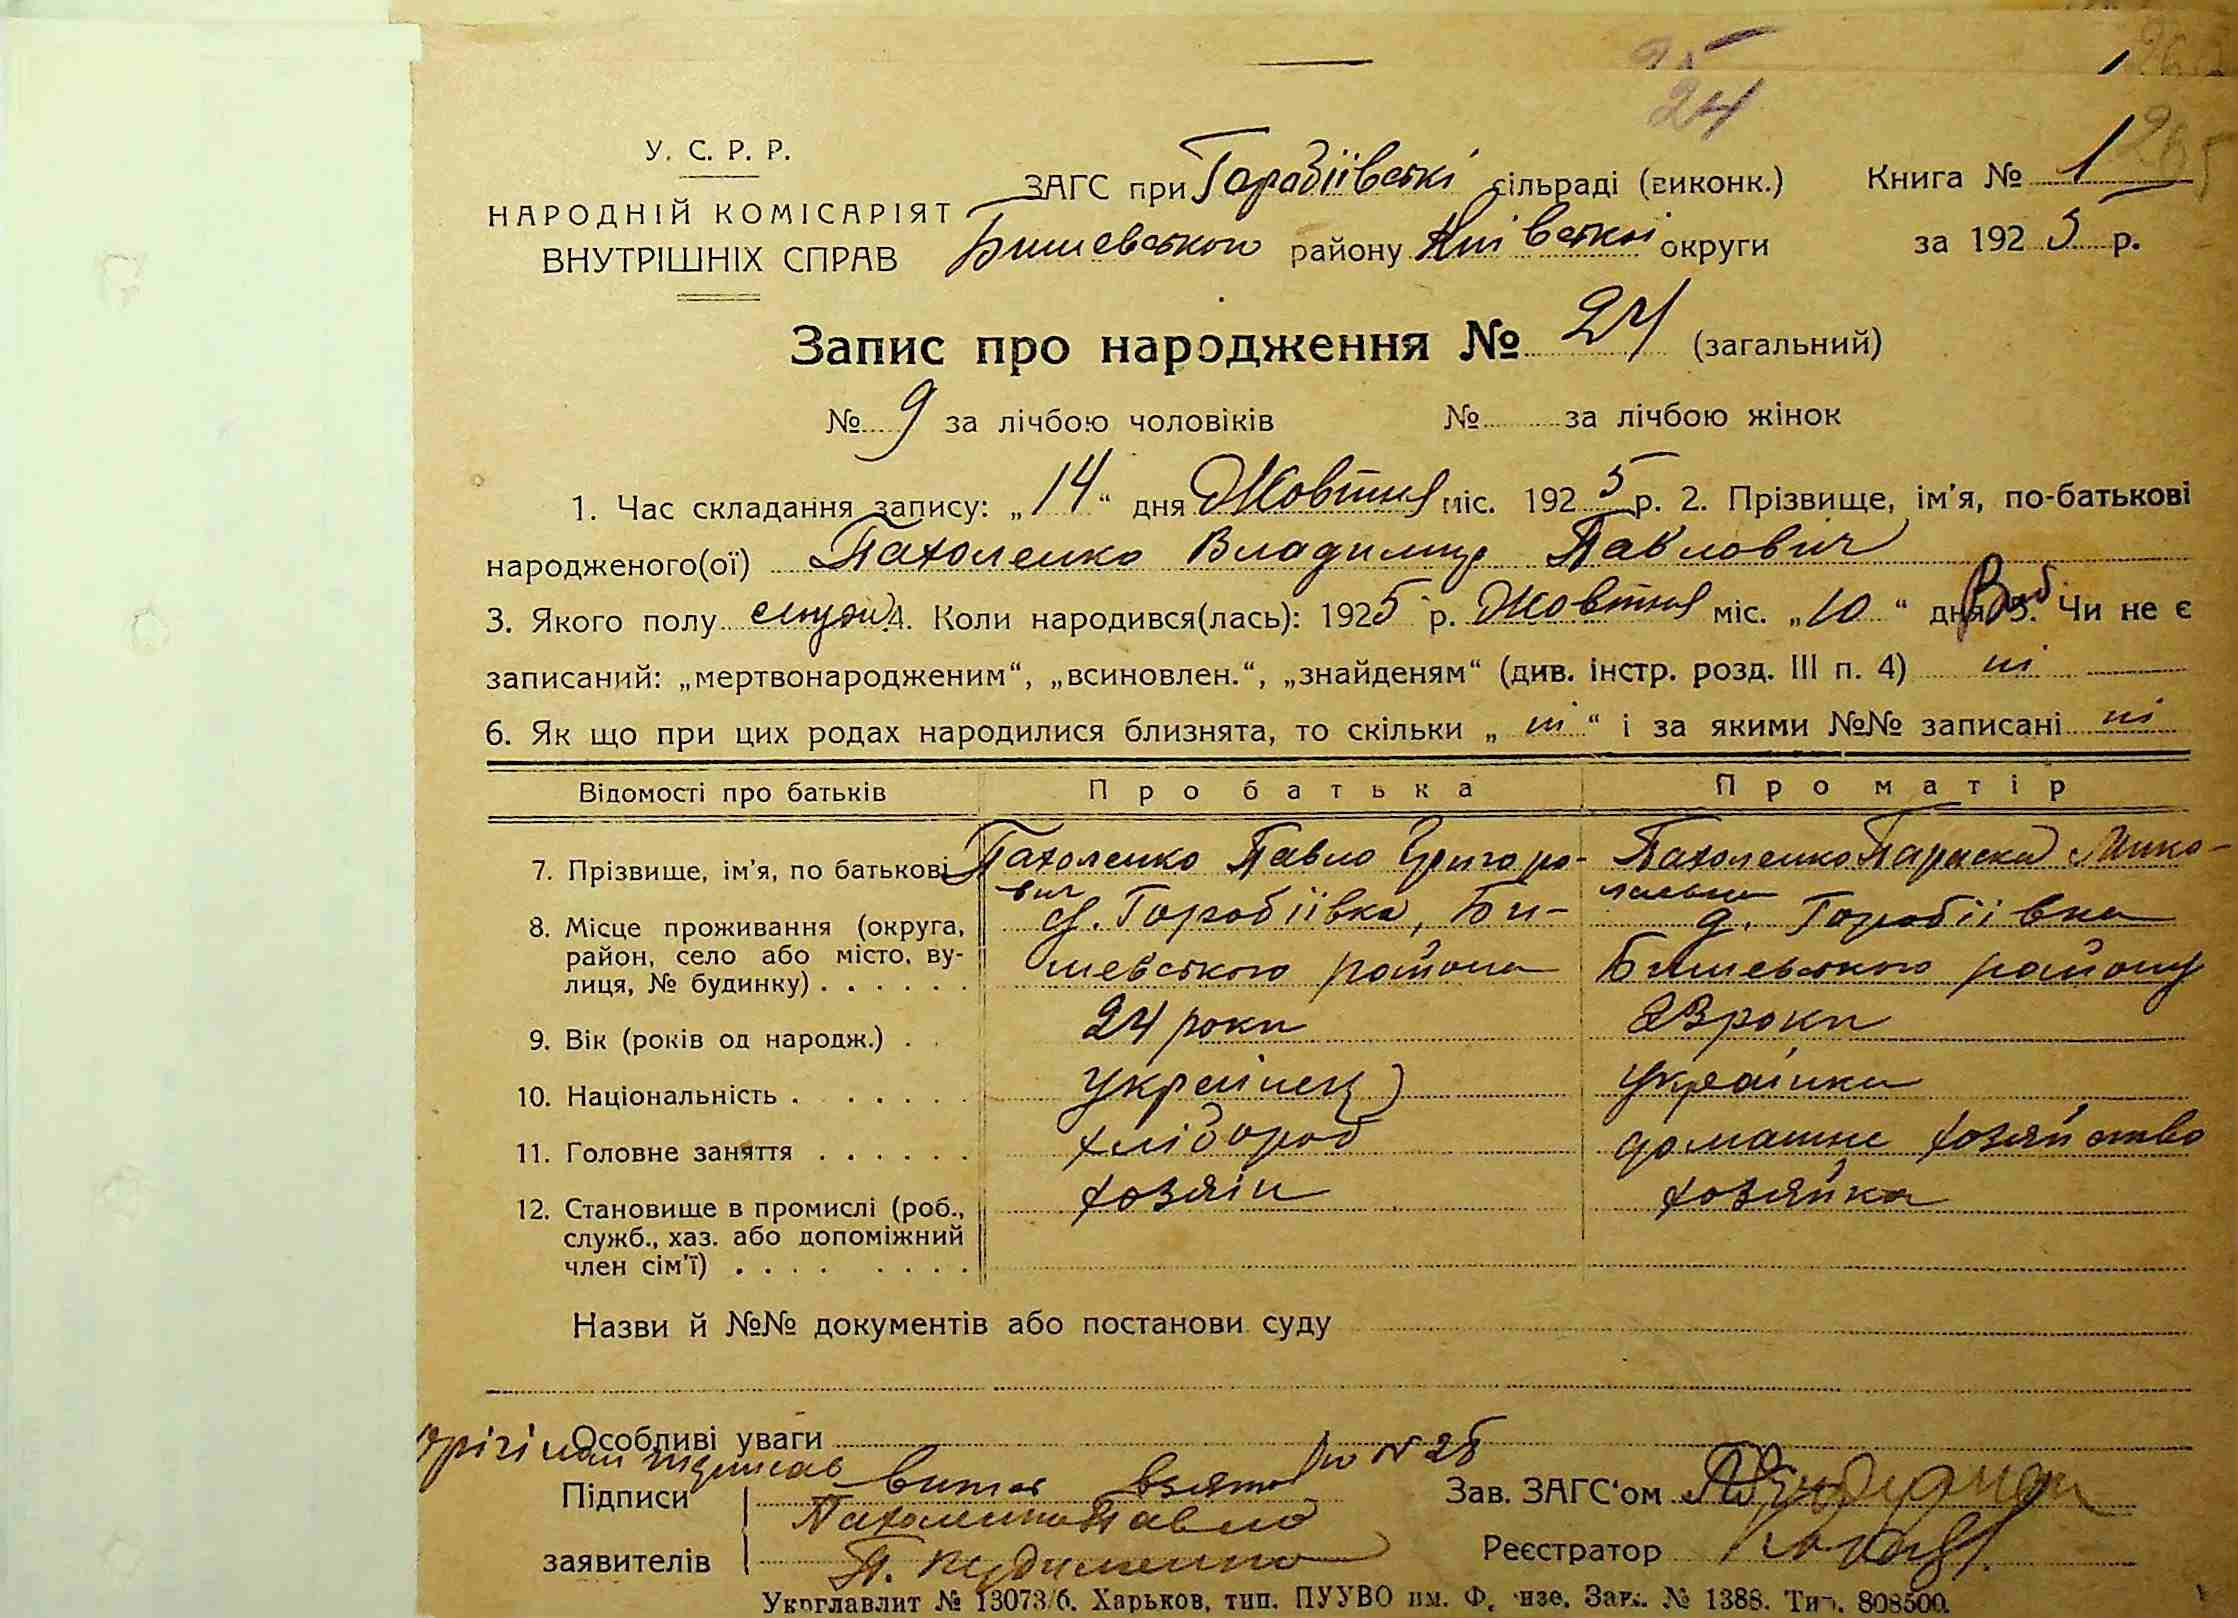 24
У. С. Р. Р.
НАРОДНІЙ КОМІСАРІЯТ
ВНУТРІШНІХ СПРАВ
ЗАГС при Горобіївські сільраді (виконк.) Книга № 1 265
Бишевського району Київської округи за 1925 р.
Запис про народження № 24 (загальний)
№ 9 за лічбою чоловіків № за лічбою жінок
1. Час складання запису: „14“ дня Жовтня міс. 1925 р. 2. Прізвище, ім'я, по-батькові
народженого(ої) Пахоленко Владимир Павлович
3. Якого полу муж 4. Коли народився(лась): 1925 р. Жовтня міс. „10“ дня 5. Чи не є
записаний: „мертвонародженим“, „всиновлен.“, „знайденям“ (див. інстр. розд. III п. 4) ні
6. Як що при цих родах народилися близнята, то скільки „ні“ і за якими №№ записані ні
Відомості про батьків Про батька Про матір
7. Прізвище, ім'я, по батькові Пахоленко Павло Григоро- Пахоленко Параска Мико-
вич лаївна
8. Місце проживання (округа, с. Горобіївка, Би- с. Горобіївка
район, село або місто, ву- шевського района Бишевського району
лиця, № будинку)
9. Вік (років од народж.) 24 роки 23 роки
10. Національність українец українка
11. Головне заняття хлібороб домашнє хозяйство
12. Становище в промислі (роб., хозяїн хозяйка
служб., хаз. або допоміжний
член сім'ї)
Назви й №№ документів або постанови суду
Особливі уваги
по № 25
Підписи
заявителів
Пахоленко Павло
Зав. ЗАГС'ом
Реєстратор
Укрглавлит № 13073/6. Харьков, тип. ПУУВО им. Ф. нзе. Зак. № 1388. Тир. 808500.